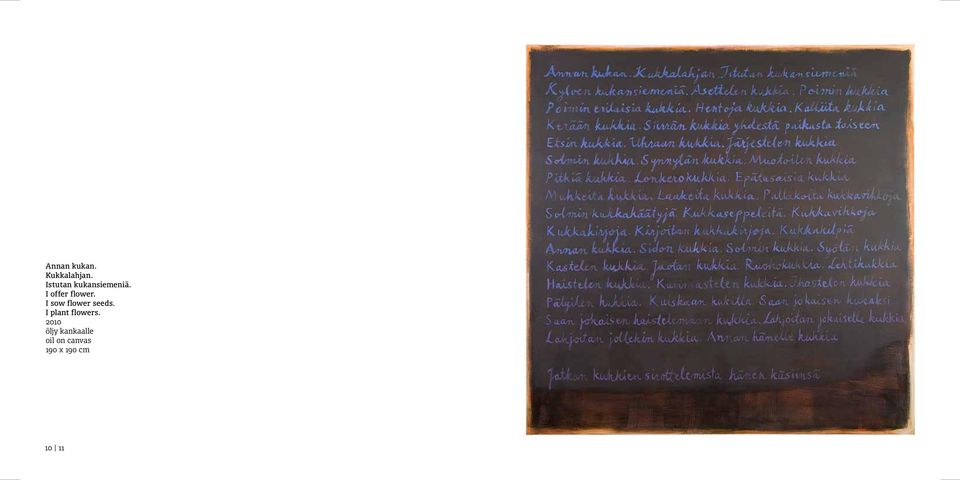 Annan kukan.
Kukkalahjan.
Istutan kukansiemeniä.
I offer flower.
I sow flower seeds.
I plant flowers.
2010
öljy kankaalle
oil on canvas
190 x 190 cm
10 | 11
Annan kukan. Kukkalahjan Istutan kukansiemeniä
Kylven kukansiemeniä. Asettelen kukkia. Poimin kukkia
Poimin erilaisia kukkia. Hentoja kukkia. Kalliita kukkia
Kerään kukkia. Siirrän kukkia yhdestä paikasta toiseen
Etsin kukkia. Uhraan kukkia. Järjestelen kukkia
Solmin kukkia. Synnytän kukkia. Muotoilen kukkia
Pitkiä kukkia. Lonkerokukkia. Epätasaisia kukkia
Muhkeita kukkia. Laakeita kukkia. Pallakoita kukkavihkoja
Solmin kukkahäätyjä. Kukkaseppeleitä. Kukkavihkoja
Kukkakirjoja. Kirjoitan kukkakirjoja. Kukkakilpiä
Annan kukkia. Sidon kukkia. Solmin kukkia. Syötän kukkia
Kastelen kukkia. Jaotan kukkia. Ruohokukkia. Lehtikukkia
Haistelen kukkia. Kummastelen kukkia. Ihastelen kukkia
Pölyilen kukkia. Kuiskaan kukilla. Saan jokaisen kukaksi
Saan jokaisen haistelemaan kukkia. Lahjoitan jokaiselle kukkia
Lahjoitan jollekin kukkia. Annan hänelle kukkia
Jatkan kukkien sirottelemista hänen käsiinsä